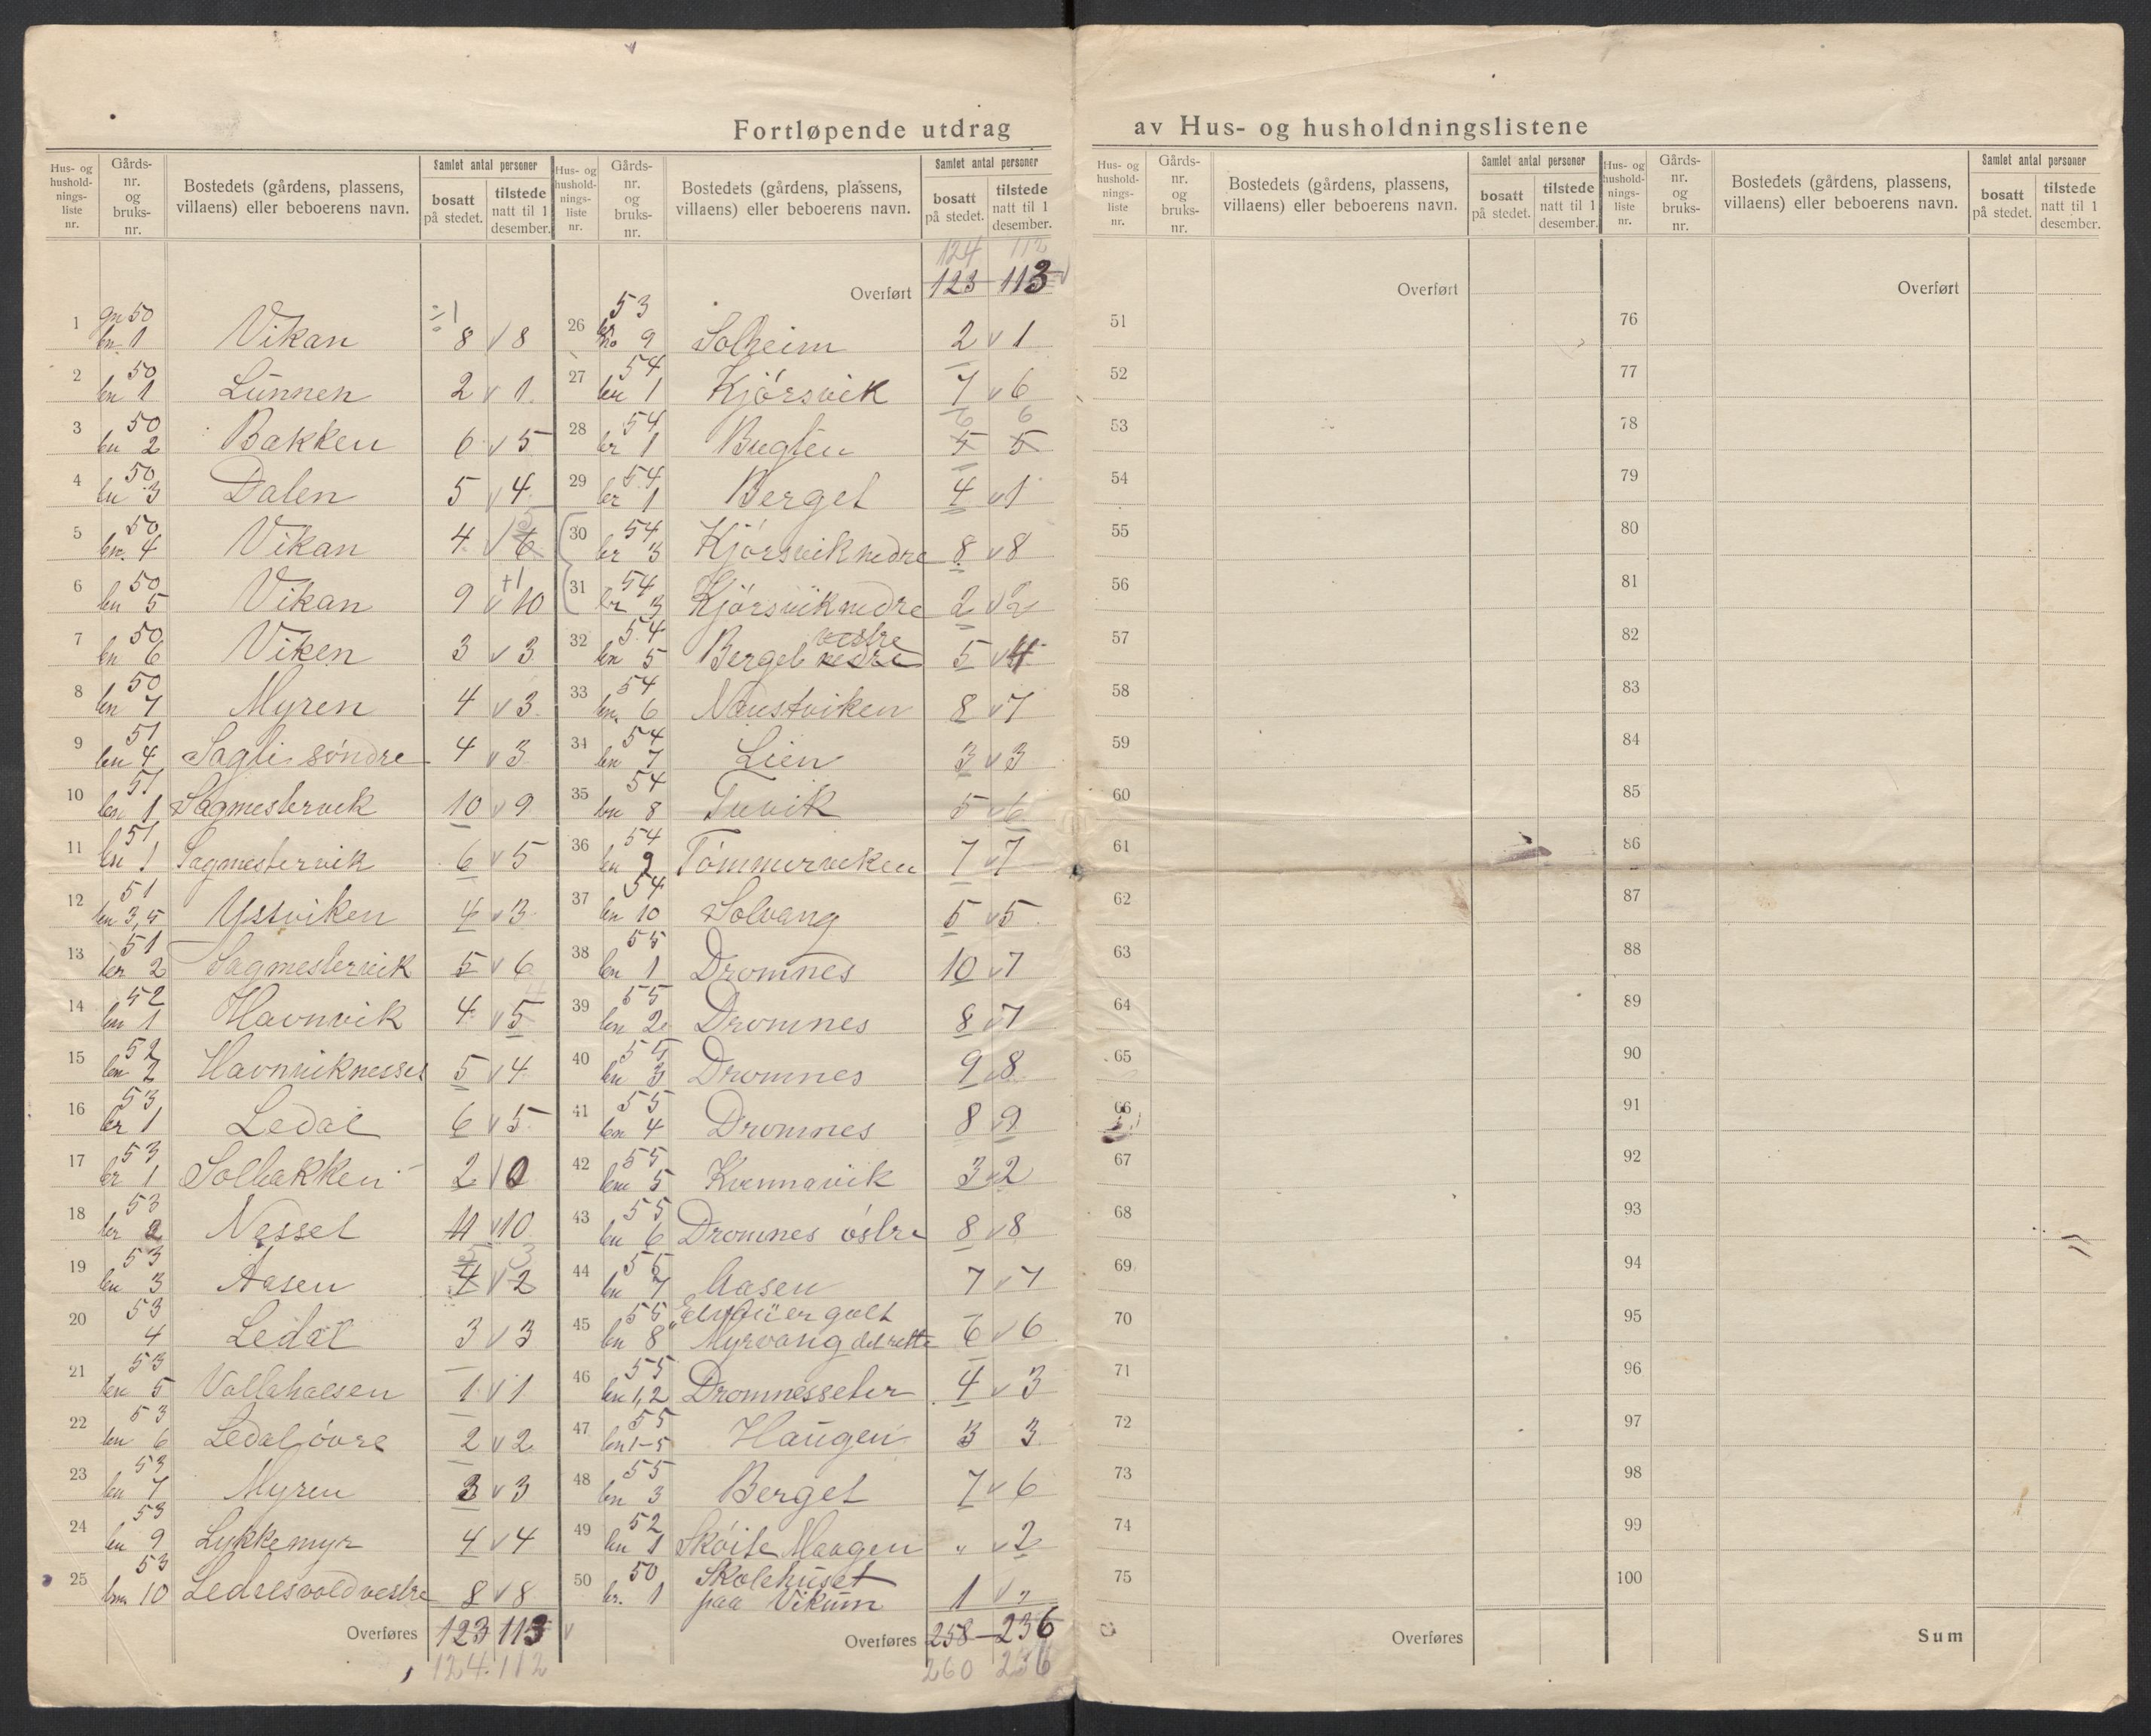 Fortløpende utdrag av Hus- og husholdningslistene
Hus- og hushold-nings-liste nr. | Gårds-nr. og bruks-nr. | Bostedets (gårdens, plassens, villaens) eller beboerens navn. | Samlet antal personer | bosatt på stedet. | tilstede natt til 1 desember.
1 gn 50 bn 1 Vikan ÷1 8 v 8
2 50 bn 1 Lünnen 2 v 1
3 50 bn 2 Bakken 6 v 5
4 50 bn 3 Dalen 5 v 4
5 50 bn. 4 Vikan 4 v 6 5
6 50 bn 5 Vikan 9 v 10 +1
7 50 bn 6 Viken 3 v 3
8 50 bn 7 Myren 4 v 3
9 51 bn 4 Sagli söndre 4 v 3
10 51 bn 1 Sagmestervik 10 v 9
11 51 bn 1 Sagmestervik 6 v 5
12 51 bn 3,5 Ystviken 4 v 3
13 51 br 2 Sagmestervik 5 v 6
14 52 bn 1 Havnvik 4 v 5 4
15 52 bn 2 Havnviknesset 5 v 4
16 53 br 1 Ledal 6 v 5
17 53 br 1 Solbakken 2 v 0
18 53 br 2 Nesset 11 v 10
19 53 bn 3 Aasen 4 v 2 5 3
20 53 4 Ledal 3 v 3
21 53 bn 5 Vollahalsen 1 v 1
22 53 bn 6 Ledal övre 2 v 2
23 53 bn 7 Myren 3 v 3
24 53 bn 9 Lykkemyr 4 v 4
25 53 bn 10 Ledalsvold vestre 8 v 8
Overføres 123 113 v
124. 112
124 112
Overført 123 113 v
26 53 br no 9 Solheim 2 v 1
27 54 bn 1 Kjörsvik 7 v 6
28 54 br 1 Bugten 5 5 6 6
29 54 br 1 Berget 4 v 1
30 54 br 3 Kjörsvik nedre 8 v 8
31 54 br 3 Kjörsvik nedre 2 v 2
32 54 bn 5 Berget nedre vestre 5 v 4
33 54 bn. 6 Naustviken 8 v 7
34 54 bn 7 Lien 3 v 3
35 54 bn 8 Tuvik 5 v 6
36 54 bn 9 Tömmerviken 7 v 7
37 54 bn 10 Solvang 5 v 5
38 55 bn 1 Dromnes 10 v 7
39 55 bn 2 Dromnes 8 v 7
40 55 bn 3 Dromnes 9 v 8
41 55 bn 4 Dromnes 8 v 9
42 55 bn 5 Kvennavik 3 v 2
43 55 bn 6 Dromnes östre 8 v 8
44 55 bn 7 Aasen 7 v 7
45 55 bn 8 er galt Myrvang det rette 6 v 6
46 55 bn 1,2 Dromnesseter 4 v 3
47 55 bn 1-5 Haugen 3 3
48 55 bn 3 Berget 7 v 6
49 52 bn 1 Sköite Maagen " v 2
50 50 br. 1 Skolehuset paa Vikum 1 v "
Overføres 258 236
260 236
Hus- og hushold-nings-liste nr. | Gårds-nr. og bruks-nr. | Bostedets (gårdens, plassens, villaens) eller beboerens navn. | Samlet antal personer | bosatt på stedet. | tilstede natt til 1 desember.
Overført
51
52
53
54
55
56
57
58
59
60
61
62
63
64
65
66
67
68
69
70
71
72
73
74
75
Overføres
Overført
76
77
78
79
80
81
82
83
84
85
86
87
88
89
90
91
92
93
94
95
96
97
98
99
100
Sum